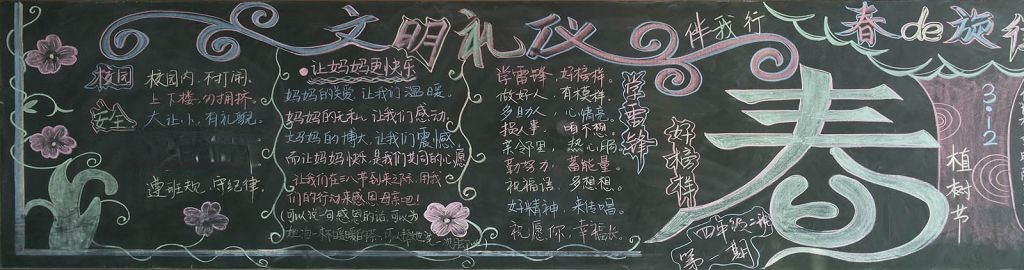 文明礼仪伴我行
春de旋
校园
安全
校园内,不打闹,
上下楼,勿拥挤。
大让小,有礼貌。
遵班规,守纪律。
让妈妈更快乐
妈妈的爱,让我们温暖。
妈妈的无私,让我们感动。
妈妈的博大,让我们震憾
而让妈妈快乐是我们共同的心愿
让我们在三八节到来之际,用我
们的行动来感恩母亲吧!
可以说一句感恩的话,可以为
学雷锋,好榜样。
做好人,有模样。
多助人,心情亮。
亲邻里,热心肠
勤努力,蓄能量。
祝福语,多想想。
好精神,来传唱。
祝愿你,幸福长。
学雷锋
好榜样
春
四年级二班
第一期
3·12
植树节